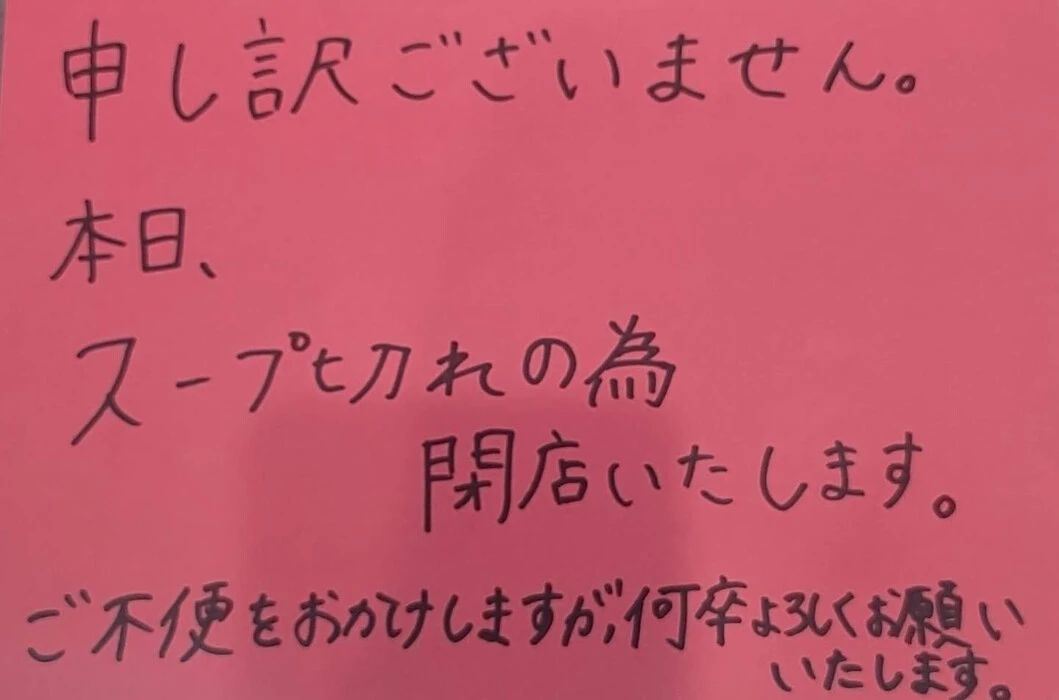 申し訳ございません。
本日、
スープ切れの為
閉店いたします。
ご不便をおかけしますが、何卒よろしくお願い
いたします。